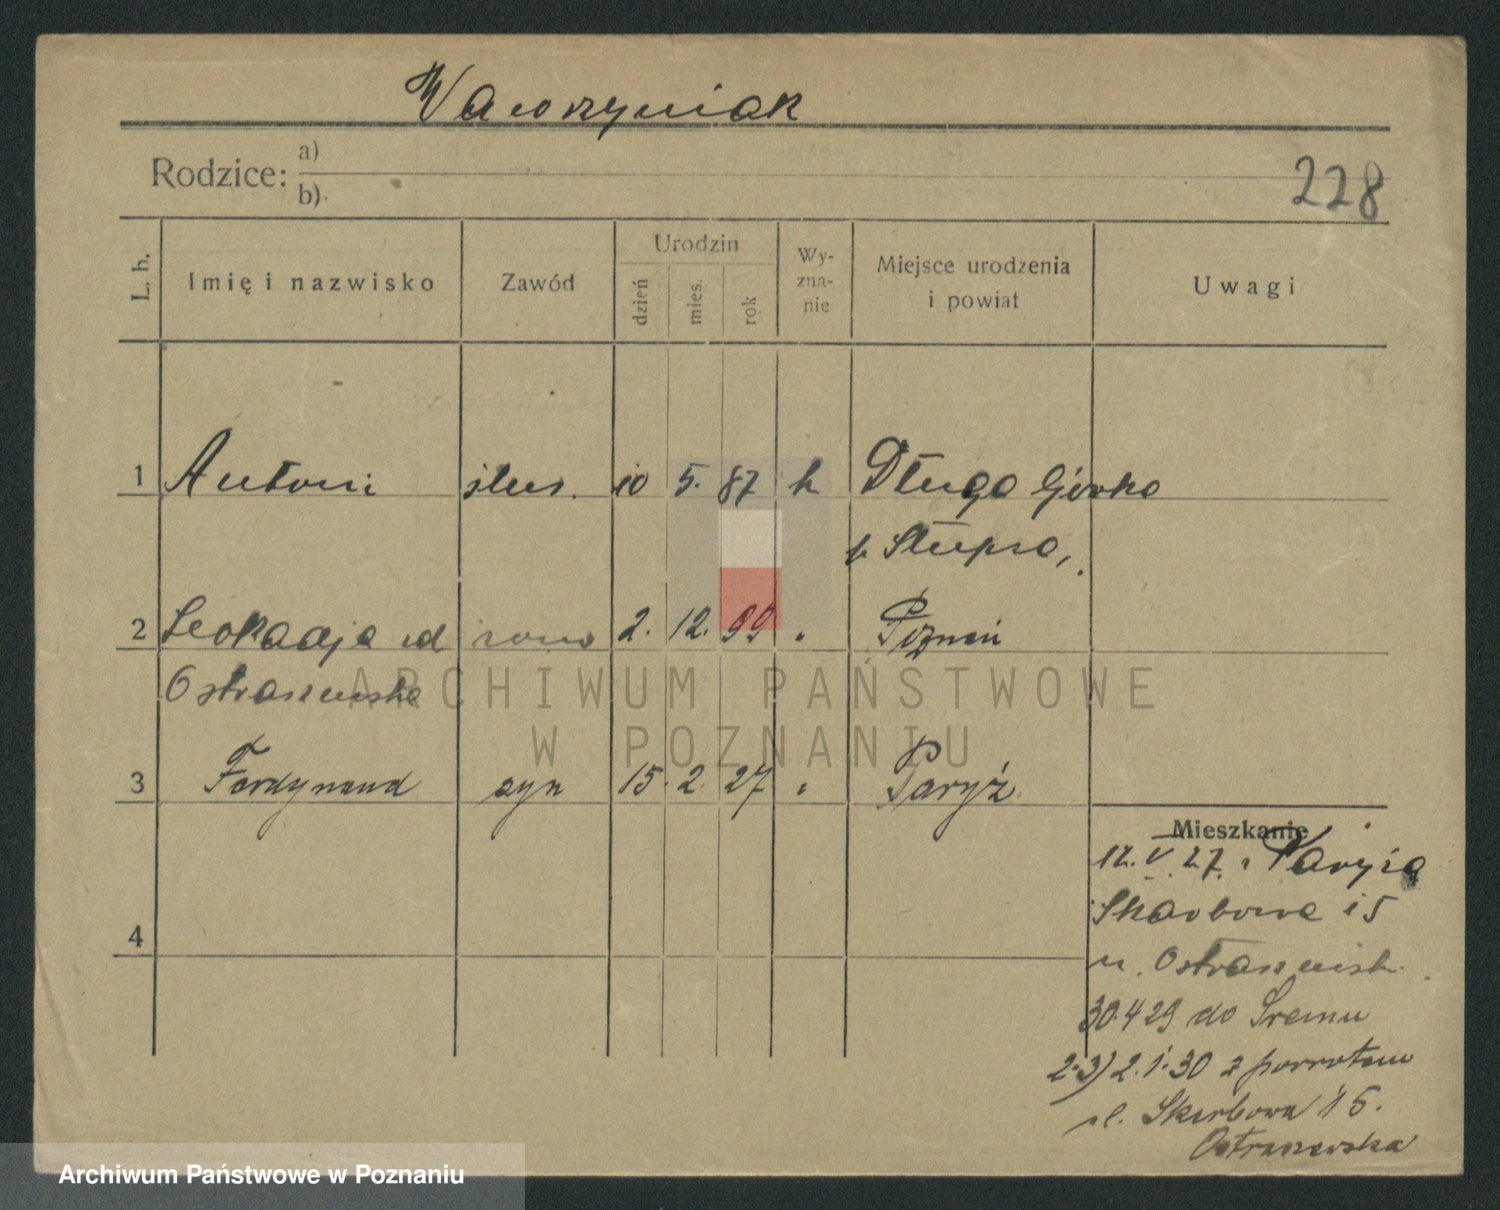 Wawrzyniak
Rodzice: a)
b)
228
L. b.
Imię i nazwisko
Zawód
Urodzin
dzień
mies.
rok
Wy-
zna-
nie
Miejsce urodzenia
i powiat
Uwagi
1 Antoni ślus. 10 5. 87 k Długa Górka
p. Słupca,
2 Leokadja ud żona 2. 12. 99 " Poznań
Ostraszewska
3 Ferdynand syn 15. 2. 27 " Paryż
4
Mieszkanie
12. V. 27. z Paryża
Skarbowa 15
u. Ostraszewsk.
30.4 29 do Śremu
2-3) 2.1.30 z powrotem
ul. Skarbowa 15.
Ostraszewska
ARCHIWUM PAŃSTWOWE
W POZNANIU
Archiwum Państwowe w Poznaniu